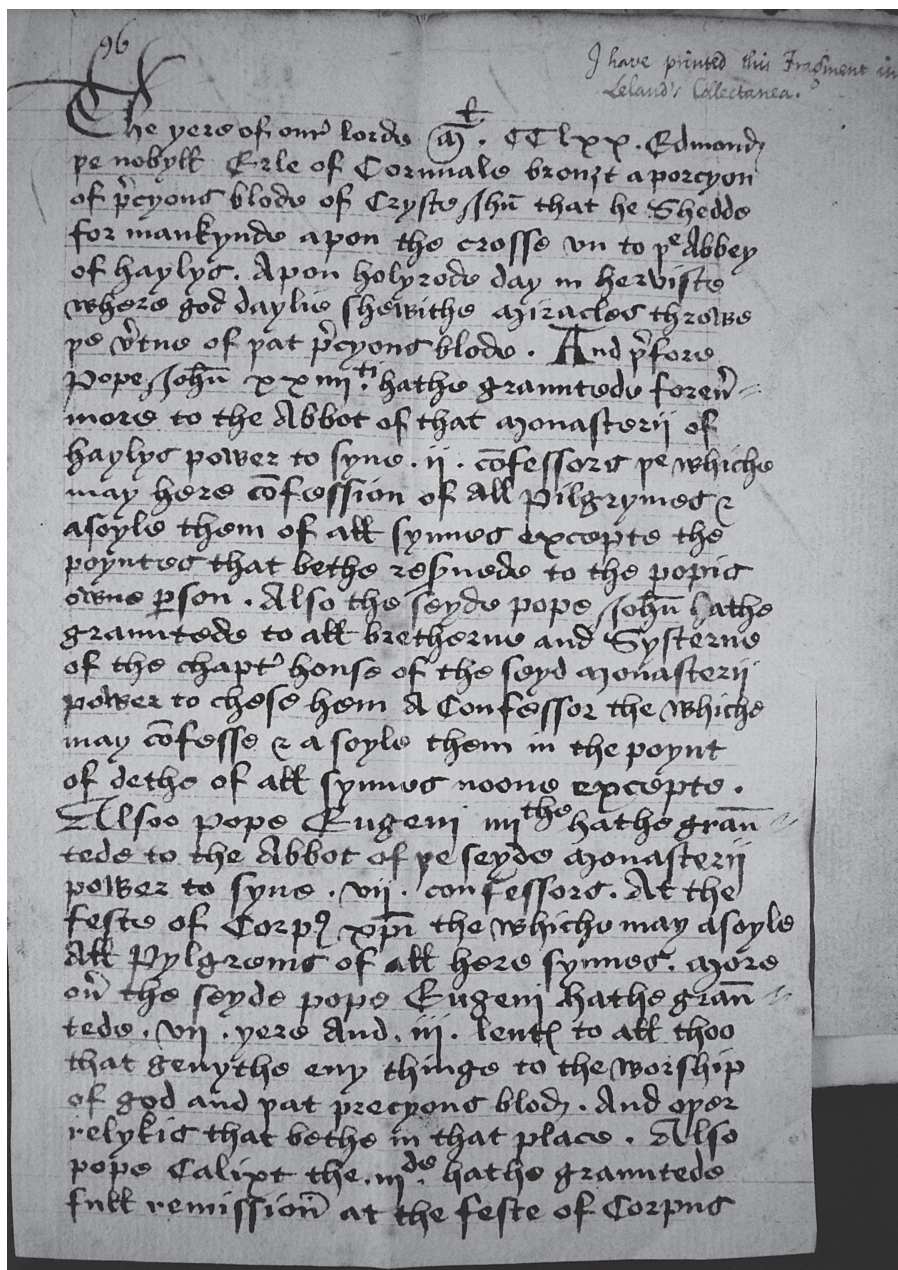 96
I have printed this Fragment in
Leland's Collectanea.
The yere of our lorde m̅ᵗ. CClxx. Edmond
þe nobyll Erle of Cornuale brouȝt a porcyon
of p̄cyous blode of Cryste Jhū that he Shedde
for mankynde apon the crosse vn to þᵉ Abbey
of haylys. Apon holyrode day in herviste
where god daylie shewithe miracles throwe
þe v̄tue of þat p̄cyous blode. And þ̄fore
Pope Johñ xxiiiiᵗⁱ. hathe grauntede foreũ-
more to the Abbot of that monasterij of
haylys power to syne .ii. cōfessors þe whiche
may here cōfession of All Pilgrymes &
asoyle them of all synnes excepte the
poyntes that bethe res̄uede to the popis
owne p̱son. Also the seyde pope Johñ hathe
grauntede to all bretherne and Systerne
of the chapt̄ house of the seyd monasterij
power to chese hem A Confessor the whiche
may cōfesse & a soyle them in the poynt
of dethe of all synnes noone excepte.
Alsoo pope Eugenj iiiiᵗʰᵉ hathe graũ=
tede to the Abbot of þe seyde monasterij
power to syne .vii. confessors. At the
feste of Corpꝰ xp̄i the whiche may asoyle
All Pylgrems of all here synnes. more
oũ the seyde pope Eugenj hathe graũ=
tede .vii. yere And .iii. lentꝭ to all thoo
that geuythe eny thinge to the worship
of god and þat precyous blod. And oþer
relykis that bethe in that place. Also
pope Calixt the .iiiᵈᵉ. hathe grauntede
full remissioñ at the feste of Corpus